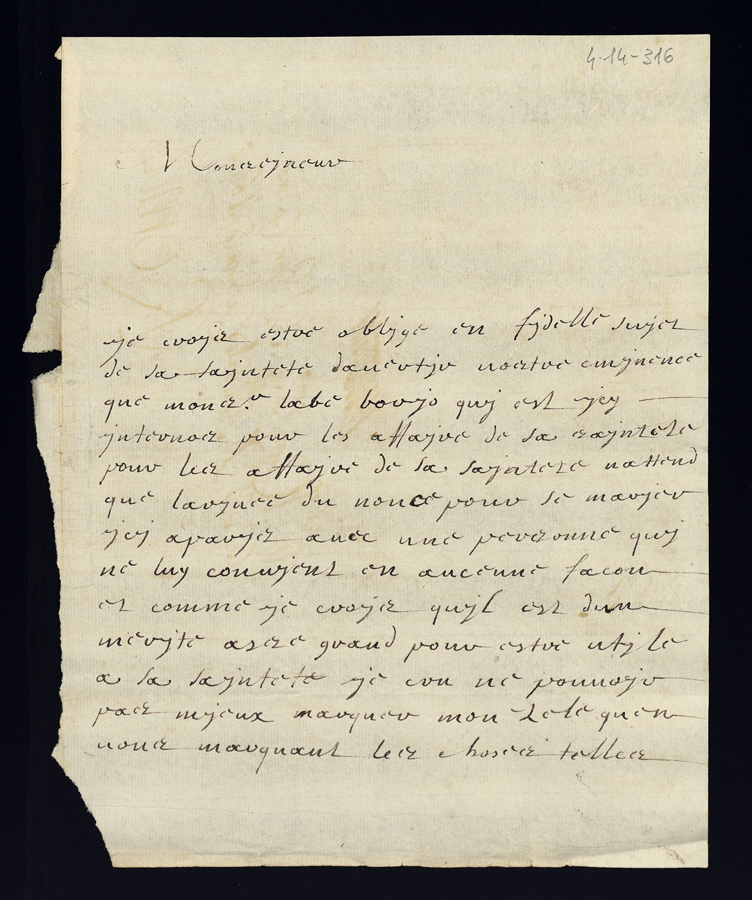 4-14-316
Monsejneur
je crojs estre oblijgé en fjdelle sujet
de sa sajnteté davertjr vostre emjnence
que mons.r labé borjo quj est jcj
jnternos pour les affajre de sa sajnteté
pour les affajre de sa sajnteté nattend
que larjvee du nonce pour se marjer
jcj a parjs avec une personne quj
ne luy convjent en aucenne facon
et comme je crojs qujl est dun
merjte asés grand pour estre utjle
a sa sajnteté je cru ne pouvojr
pas mjeux marquer mon zele quen
vous marquant les choses telles